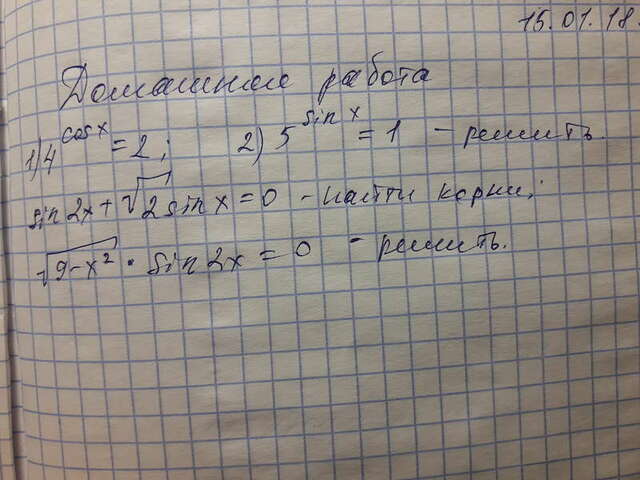 15.01.18
Домашняя работа
1) 4^cos x = 2; 2) 5^sin x = 1 - решить.
sin 2x + √2 sin x = 0 - найти корни;
√9-x² · sin 2x = 0 - решить.